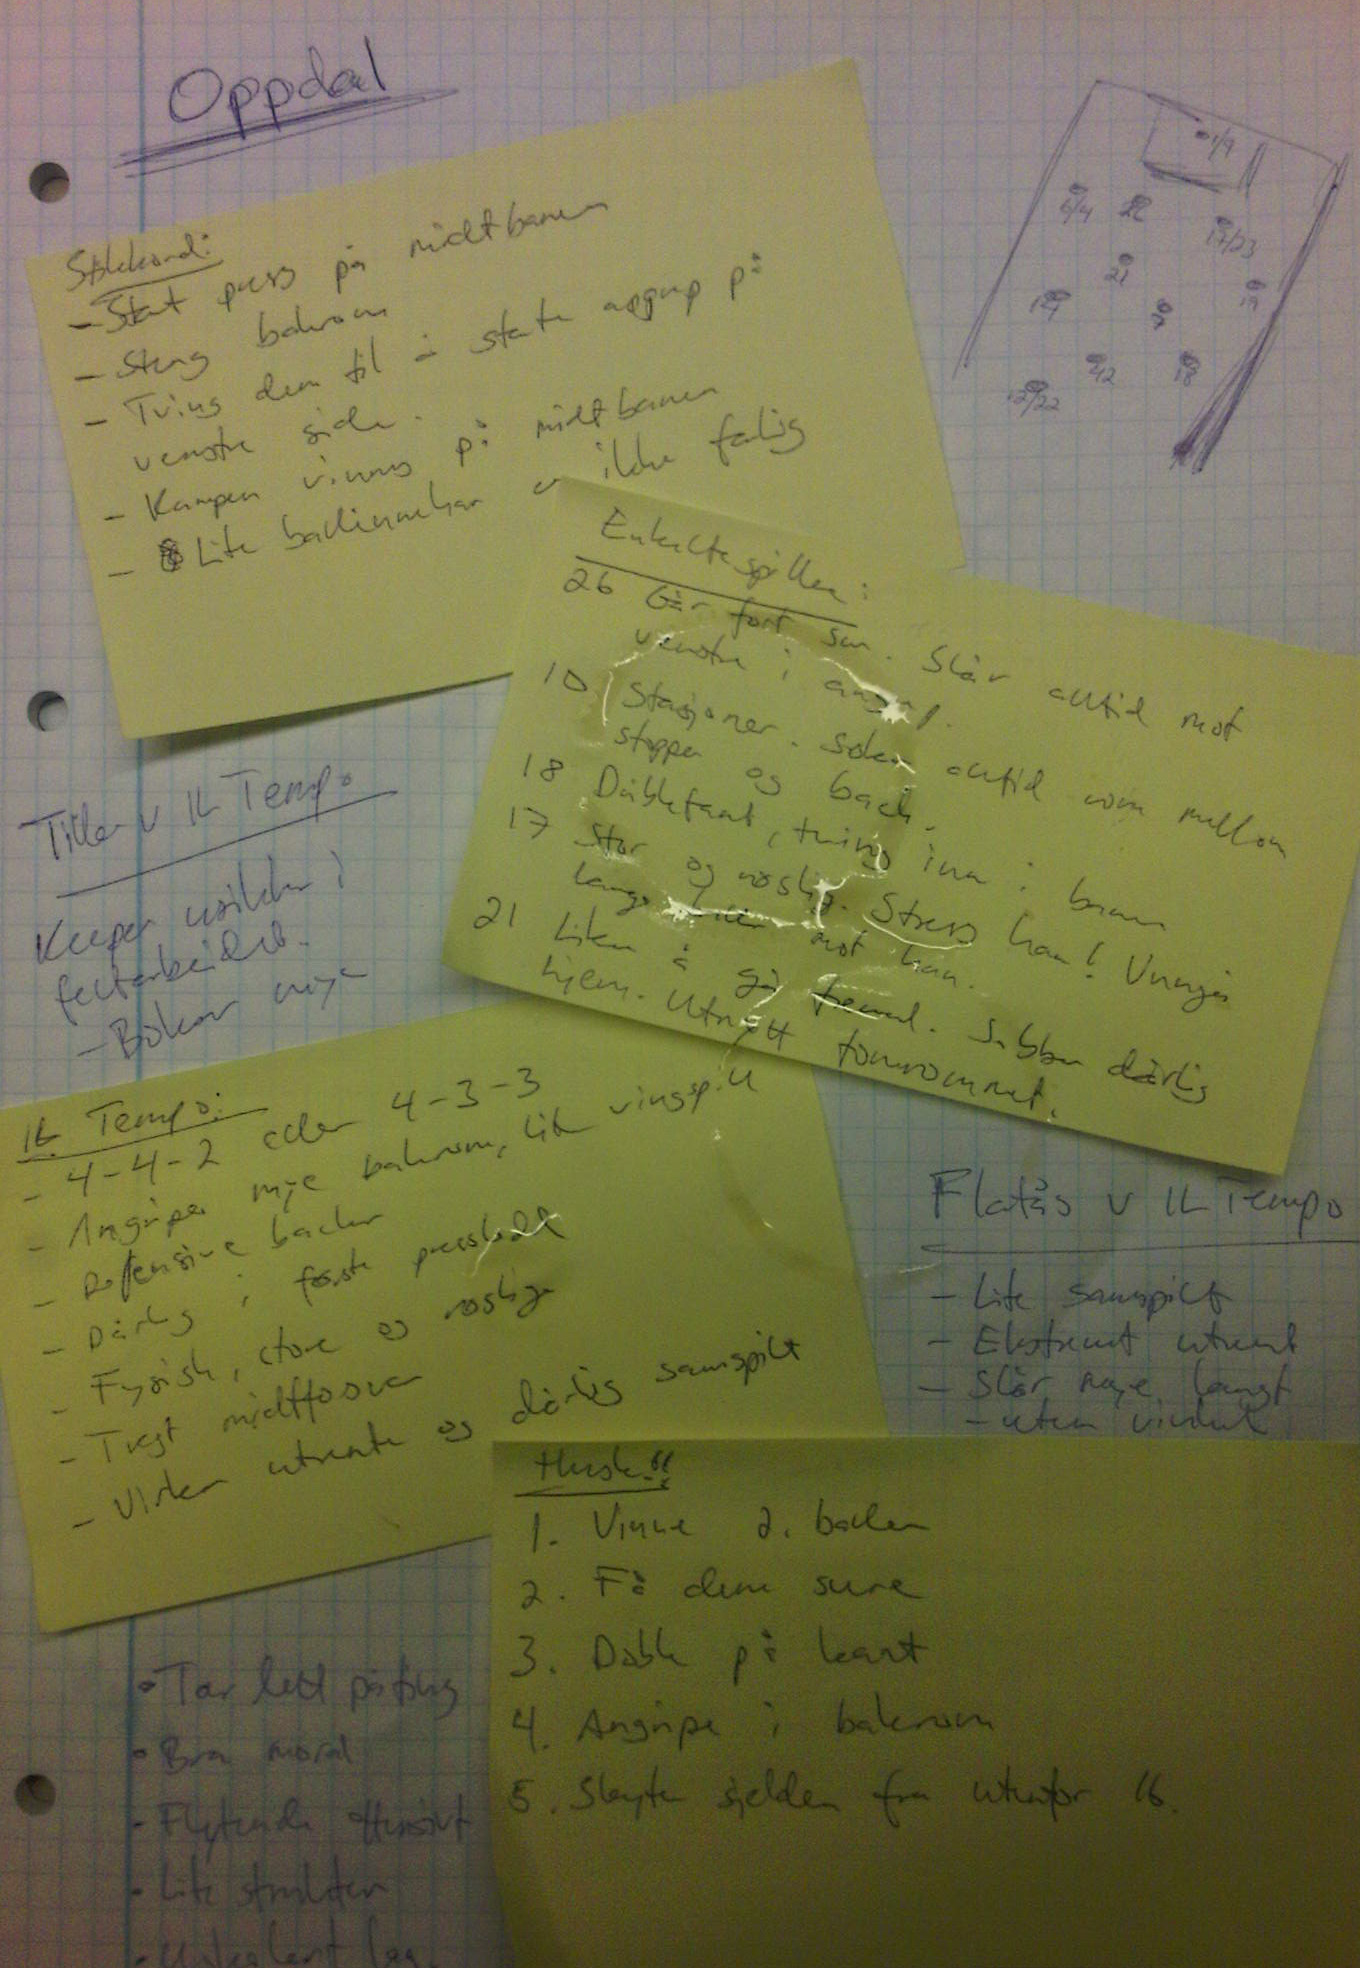 Oppdal
1/9
5/4
22
17/23
21
19
7
18
12/22
Stikkord:
- Støt press på midtbanen
- Steng bakrom
- Tving dem til å starte angrep på
venstre side.
- Kampen vinnes på midtbanen
- Lite ballinnehav er ikke farlig
Enkeltespillere:
26 Går fort sur. Slår alltid mot
venstre i angrep.
10 Stasjonær. Søker alltid rom mellom
stopper og back.
18 Driblefant, tving inn i banen
17 Stor og røslig. Stress han! Unngå
lange mot han.
21 Liker å gå fremad. Jobber dårlig
hjem. Utnytt tomrommet.
Tiller v IL Tempo
Keeper usikker i
feltarbeidet.
- Bøkar mye
IL Tempo:
- 4-4-2 eller 4-3-3
- Angriper mye bakrom, lite vingspill
- Defensive backer
- Dårlig i første pressledd
- Fysisk, store og røslige
- Tregt midtforsvar
- Virker utrente og dårlig samspilt
Flatås v IL Tempo
- Lite samspilt
- Ekstremt utrent
- Slår mye langt
- uten vinkel
Husk!!
1. Vinne 2. ballen
2. Få dem sure
3. Dable på kant
4. Angripe i bakrom
5. Skyter sjelden fra utenfor 16.
• Tar lett på ting
• Bra moral
• Flytende offensivt
• Lite struktur
lag